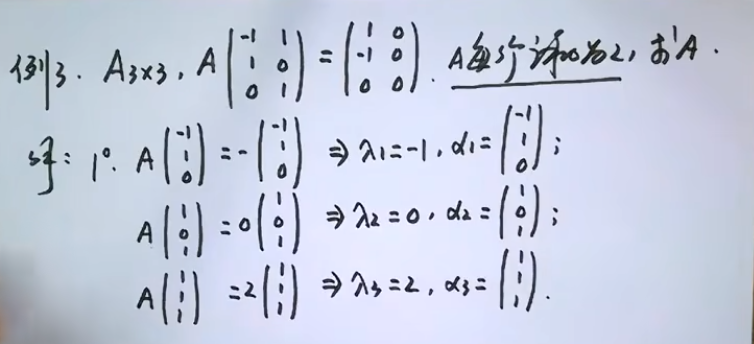 例3. A3×3, A(-1 1; 1 0; 0 1) = (1 0; -1 0; 0 0). A每行和为2, 求A.
解: 1°. A(-1; 1; 0) = -(-1; 1; 0) ⇒ λ1=-1, α1=(-1; 1; 0);
A(1; 0; 1) = 0(1; 0; 1) ⇒ λ2=0, α2=(1; 0; 1);
A(1; 1; 1) = 2(1; 1; 1) ⇒ λ3=2, α3=(1; 1; 1).